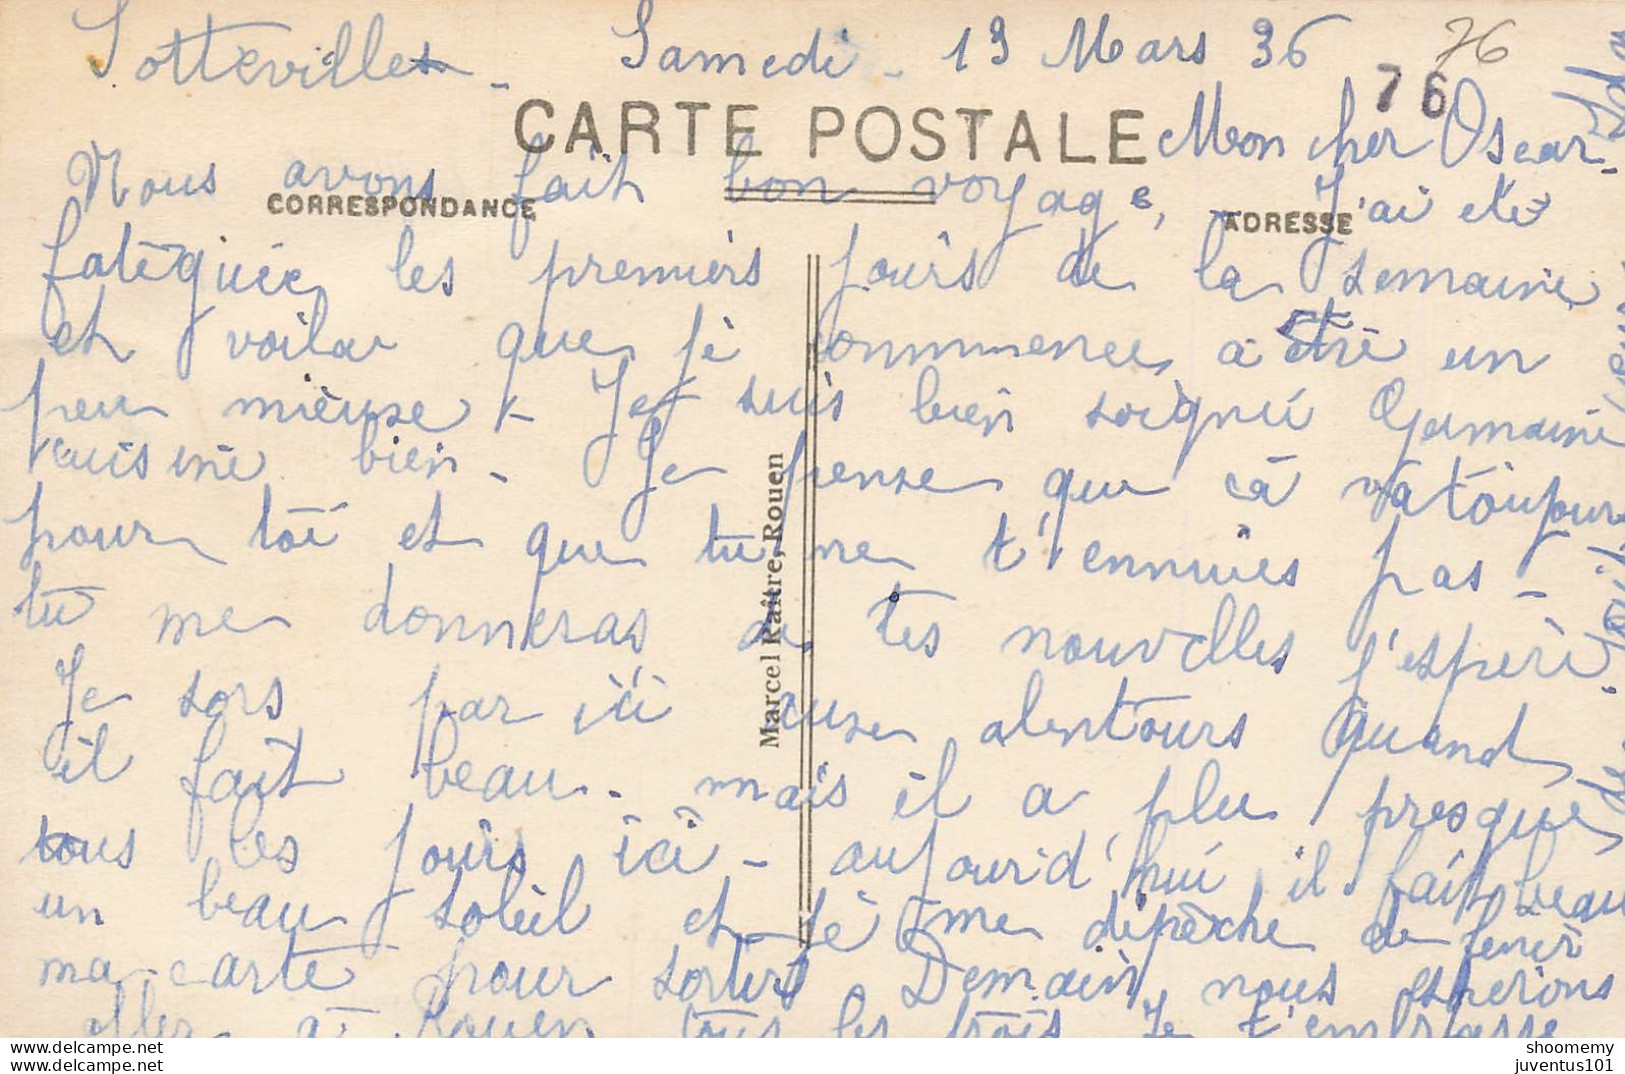 Sotteville - Samedi - 13 Mars 36
76
76
CARTE POSTALE
Mon cher Oscar -
CORRESPONDANCE
ADRESSE
Nous avons fait bon voyage, - J'ai été
fatiguée les premiers jours de la semaine
et voila que je commence a être un
peu mieuse - Je suis bien soigné Germaine
cuisine bien - Je pense que ca va toujours
pour toi et que tu ne t'ennuies pas -
tu me donneras de tes nouvelles j'espère
Je sors par ici aux alentours Quand
il fait beau - mais il a plu presque
tous les jours ici - aujourd'hui il fait beau
un beau soleil et je me dépèche de fenir
ma carte pour sortir Demain nous esperions
aller a Rouen tous les trois Je t'embrasse
Marcel Raître, Rouen
www.delcampe.com
www.delcampe.net
shoomemy
juventus101